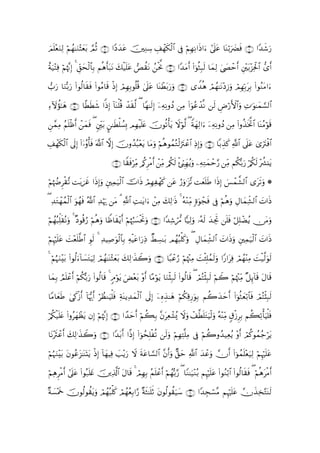 رَشَدًا ۝ فَضَرَبْنَا عَلَىٰ ءَاذَانِهِمْ فِى ٱلْكَهْفِ سِنِينَ عَدَدًا ۝ ثُمَّ بَعَثْنَـٰهُمْ لِنَعْلَمَ
أَىُّ ٱلْحِزْبَيْنِ أَحْصَىٰ لِمَا لَبِثُوٓا۟ أَمَدًا ۝ نَّحْنُ نَقُصُّ عَلَيْكَ نَبَأَهُم بِٱلْحَقِّ ۚ إِنَّهُمْ فِتْيَةٌ
ءَامَنُوا۟ بِرَبِّهِمْ وَزِدْنَـٰهُمْ هُدًى ۝ وَرَبَطْنَا عَلَىٰ قُلُوبِهِمْ إِذْ قَامُوا۟ فَقَالُوا۟ رَبُّنَا رَبُّ
ٱلسَّمَـٰوَٰتِ وَٱلْأَرْضِ لَن نَّدْعُوَا۟ مِن دُونِهِۦٓ إِلَـٰهًا ۖ لَّقَدْ قُلْنَآ إِذًا شَطَطًا ۝ هَـٰٓؤُلَآءِ
قَوْمُنَا ٱتَّخَذُوا۟ مِن دُونِهِۦٓ ءَالِهَةً ۖ لَّوْلَا يَأْتُونَ عَلَيْهِم بِسُلْطَـٰنٍۭ بَيِّنٍ ۖ فَمَنْ أَظْلَمُ مِمَّنِ
ٱفْتَرَىٰ عَلَى ٱللَّهِ كَذِبًا ۝ وَإِذِ ٱعْتَزَلْتُمُوهُمْ وَمَا يَعْبُدُونَ إِلَّا ٱللَّهَ فَأْوُۥٓا۟ إِلَى ٱلْكَهْفِ
يَنشُرْ لَكُمْ رَبُّكُم مِّن رَّحْمَتِهِۦ وَيُهَيِّئْ لَكُم مِّنْ أَمْرِكُم مِّرْفَقًا ۝
۞ وَتَرَى ٱلشَّمْسَ إِذَا طَلَعَت تَّزَٰوَرُ عَن كَهْفِهِمْ ذَاتَ ٱلْيَمِينِ وَإِذَا غَرَبَت تَّقْرِضُهُمْ
ذَاتَ ٱلشِّمَالِ وَهُمْ فِى فَجْوَةٍ مِّنْهُ ۚ ذَٰلِكَ مِنْ ءَايَـٰتِ ٱللَّهِ ۗ مَن يَهْدِ ٱللَّهُ فَهُوَ ٱلْمُهْتَدِ ۖ
وَمَن يُضْلِلْ فَلَن تَجِدَ لَهُۥ وَلِيًّا مُّرْشِدًا ۝ وَتَحْسَبُهُمْ أَيْقَاظًا وَهُمْ رُقُودٌ ۚ وَنُقَلِّبُهُمْ
ذَاتَ ٱلْيَمِينِ وَذَاتَ ٱلشِّمَالِ ۖ وَكَلْبُهُم بَـٰسِطٌ ذِرَاعَيْهِ بِٱلْوَصِيدِ ۚ لَوِ ٱطَّلَعْتَ عَلَيْهِمْ
لَوَلَّيْتَ مِنْهُمْ فِرَارًا وَلَمُلِئْتَ مِنْهُمْ رُعْبًا ۝ وَكَذَٰلِكَ بَعَثْنَـٰهُمْ لِيَتَسَآءَلُوا۟ بَيْنَهُمْ ۚ
قَالَ قَآئِلٌ مِّنْهُمْ كَمْ لَبِثْتُمْ ۖ قَالُوا۟ لَبِثْنَا يَوْمًا أَوْ بَعْضَ يَوْمٍ ۚ قَالُوا۟ رَبُّكُمْ أَعْلَمُ بِمَا
لَبِثْتُمْ فَٱبْعَثُوٓا۟ أَحَدَكُم بِوَرِقِكُمْ هَـٰذِهِۦٓ إِلَى ٱلْمَدِينَةِ فَلْيَنظُرْ أَيُّهَآ أَزْكَىٰ طَعَامًا
فَلْيَأْتِكُم بِرِزْقٍ مِّنْهُ وَلْيَتَلَطَّفْ وَلَا يُشْعِرَنَّ بِكُمْ أَحَدًا ۝ إِنَّهُمْ إِن يَظْهَرُوا۟ عَلَيْكُمْ
يَرْجُمُوكُمْ أَوْ يُعِيدُوكُمْ فِى مِلَّتِهِمْ وَلَن تُفْلِحُوٓا۟ إِذًا أَبَدًا ۝ وَكَذَٰلِكَ أَعْثَرْنَا
عَلَيْهِمْ لِيَعْلَمُوٓا۟ أَنَّ وَعْدَ ٱللَّهِ حَقٌّ وَأَنَّ ٱلسَّاعَةَ لَا رَيْبَ فِيهَآ إِذْ يَتَنَـٰزَعُونَ بَيْنَهُمْ
أَمْرَهُمْ ۖ فَقَالُوا۟ ٱبْنُوا۟ عَلَيْهِم بُنْيَـٰنًا ۖ رَّبُّهُمْ أَعْلَمُ بِهِمْ ۚ قَالَ ٱلَّذِينَ غَلَبُوا۟ عَلَىٰٓ أَمْرِهِمْ
لَنَتَّخِذَنَّ عَلَيْهِم مَّسْجِدًا ۝ سَيَقُولُونَ ثَلَـٰثَةٌ رَّابِعُهُمْ كَلْبُهُمْ وَيَقُولُونَ خَمْسَةٌ